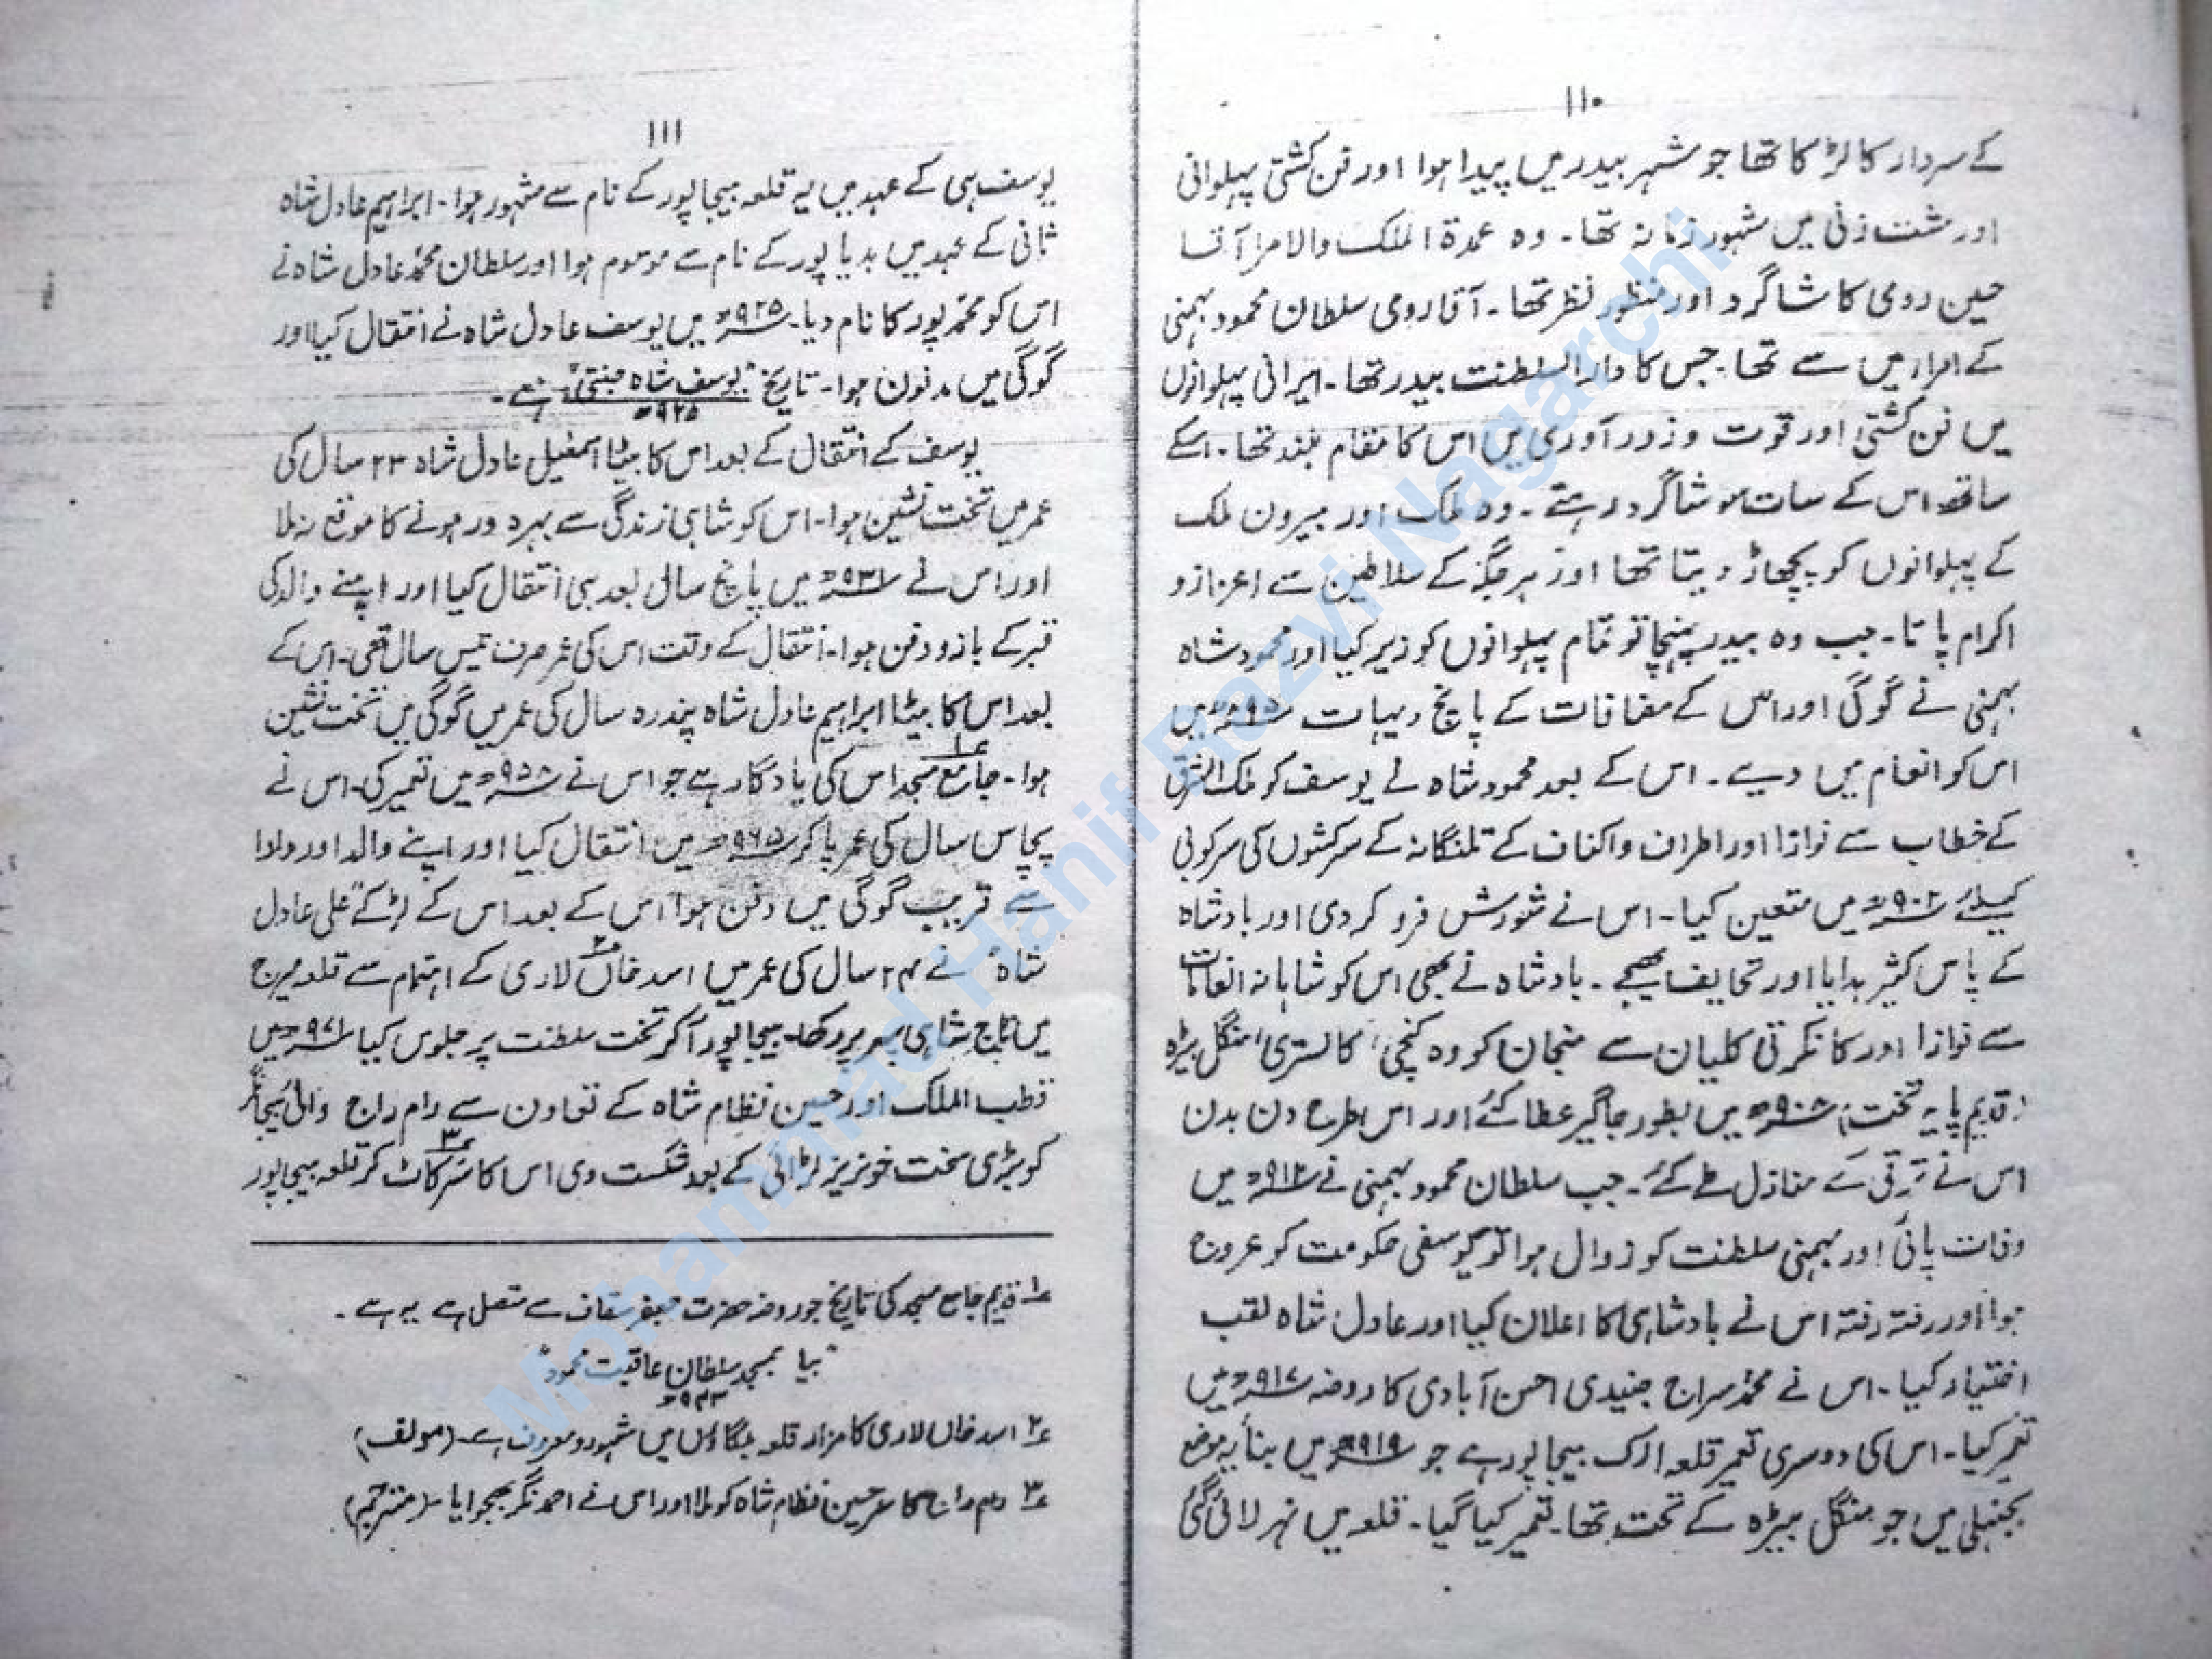 ۱۱۰
کے سردار کا لڑکا تھا جو شہر بیدر میں پیدا ہوا اور فن کشتی پہلوانی
اور مشت زنی میں مشہور زمانہ تھا۔ وہ عمدۃ الملک والامرا آقا
حسین رومی کا شاگرد اور منظور نظر تھا۔ آقا رومی سلطان محمود بہمنی
کے امراء میں سے تھا۔ جس کا دارالسلطنت بیدر تھا۔ ایرانی پہلوانوں
میں فن کشتی اور قوت و زور آوری میں اس کا مقام بلند تھا۔ اسکے
ساتھ اس کے سات سو شاگرد رہتے۔ وہ ملک اور بیرون ملک
کے پہلوانوں کو پچھاڑ دیتا تھا اور ہر جگہ کے سلاطین سے اعزاز و
اکرام پاتا۔ جب وہ بیدر پہنچا تو تمام پہلوانوں کو زیر کیا اور محمود شاہ
بہمنی نے گوگی اور اس کے مضافات کے پانچ دیہات میں
اس کو انعام میں دیے۔ اس کے بعد محمود شاہ نے یوسف کو ملک الشرق
کے خطاب سے نوازا اور اطراف واکناف کے تلنگانہ کے سرکشوں کی سرکوبی
کیلئے ۹۰۲ھ میں متعین کیا۔ اس نے شورش فرو کر دی اور بادشاہ
کے پاس کثیر ہدایا اور تحایف بھیجے۔ بادشاہ نے بھی اس کو شاہانہ انعامات
سے نوازا اور کانکرتی کلیان سے منجان کو وہ کنچی، کالستری، منگل بیڑہ
(قدیم پایہ تخت) ۹۰۸ھ میں بطور جاگیر عطا کئے اور اس طرح دن بدن
اس نے ترقی کے منازل طے کئے۔ جب سلطان محمود بہمنی نے میں
وفات پائی اور بہمنی سلطنت کو زوال ہوا تو یوسفی حکومت کو عروج
ہوا اور رفتہ رفتہ اس نے بادشاہی کا اعلان کیا اور عادل شاہ لقب
اختیار کیا۔ اس نے محمد سراج جنیدی احسن آبادی کا روضہ ۹۱۷ھ میں
تعمیر کیا۔ اس کی دوسری تعمیر قلعہ ارک بیجاپور ہے جو ۹۱۹ھ میں بنا بہ موضع
میں جو منگل بیڑہ کے تحت تھا۔ تعمیر کیا گیا۔ قلعہ میں نہر لائی گئی
۱۱۱
یوسف ہی کے عہد میں یہ قلعہ بیجاپور کے نام سے مشہور ہوا۔ ابراہیم عادل شاہ
ثانی کے عہد میں بدیاپور کے نام سے موسوم ہوا اور سلطان محمد عادل شاہ نے
اس کو محمد پور کا نام دیا۔ ۹۲۵ھ میں یوسف عادل شاہ نے انتقال کیا اور
گوگی میں مدفون ہوا۔ تاریخ "یوسف شاہ جنتی" ہے۔
۹۲۵ھ
یوسف کے انتقال کے بعد اس کا بیٹا اسمٰعیل عادل شاہ ۲۳ سال کی
عمر میں تخت نشین ہوا۔ اس کو شاہی زندگی سے بہرہ ور ہونے کا موقع نہ ملا
اور اس نے ۹۳۱ھ میں پانچ سال بعد ہی انتقال کیا اور اپنے والد کی
قبر کے بازو دفن ہوا۔ انتقال کے وقت اس کی عمر صرف تیس سال تھی۔ اس کے
بعد اس کا بیٹا ابراہیم عادل شاہ پندرہ سال کی عمر میں گوگی میں تخت نشین
ہوا۔ جامع مسجد؎۱ اس کی یادگار ہے جو اس نے ۹۵۸ھ میں تعمیر کی۔ اس نے
پچاس سال کی عمر پا کر ۹۶۵ھ میں انتقال کیا اور اپنے والد اور دادا
سے قریب گوگی میں دفن ہوا اس کے بعد اس کے لڑکے "علی عادل
شاہ" نے ۲۴ سال کی عمر میں اسد خاں؎۲ لاری کے اہتمام سے قلعہ میرج
میں تاج شاہی سر پر رکھا۔ بیجاپور آ کر تخت سلطنت پر جلوس کیا ۹۷۱ھ میں
قطب الملک اور حسین نظام شاہ کے تعاون سے رام راج والئی بیجانگر
کو بڑی سخت خونریز لڑائی کے بعد شکست دی اس کا سر؎۳ کاٹ کر قلعہ بیجاپور
؎۱ قدیم جامع مسجد کی تاریخ جو روضہ حضرت جعفر سقاف سے متصل ہے یہ ہے۔
"بیا بمسجد سلطان عاقبت محمود"
؎۲ اسد خاں لاری کا مزار قلعہ بلگاؤں میں مشہور و معروف ہے۔ (مولف)
؎۳ رام راج کا سر حسین نظام شاہ کو ملا اور اس نے احمد نگر بھجوایا۔ (مترجم)
Mohammad Hanif Razvi Nagarchi